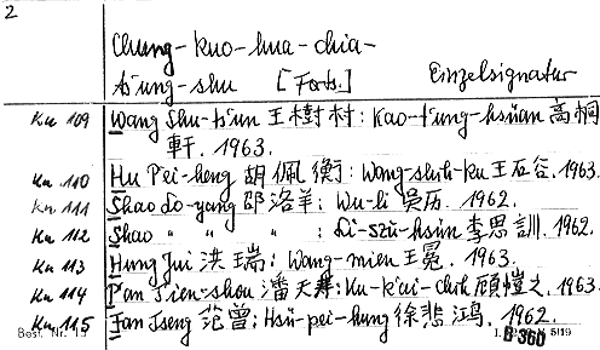 2
Chung-kuo-hua-chia-
ts'ung-shu [Forts.] Einzelsignatur
Ku 109 Wang Shu-ts'un 王樹村: Kao-t'ung-hsüan 高桐
軒. 1963.
Ku 110 Hu P'ei-heng 胡佩衡: Wang-shih-ku 王石谷. 1963.
Ku 111 Shao Lo-yang 邵洛羊: Wu-li 吳历. 1962.
Ku 112 Shao " " " : Li-szŭ-hsün 李思訓. 1962.
Ku 113 Hung Jui 洪瑞: Wang-mien 王冕. 1963.
Ku 114 P'an T'ien-shou 潘天寿: Ku-k'ai-chih 顾愷之. 1963.
Ku 115 Fan Tseng 范曾: Hsü-pei-hung 徐悲鸿. 1962.
Best. Nr. 15 B 360 5119